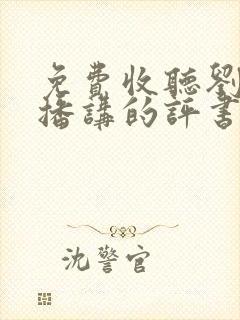 免費收聽劉
播講的評書
沈警官